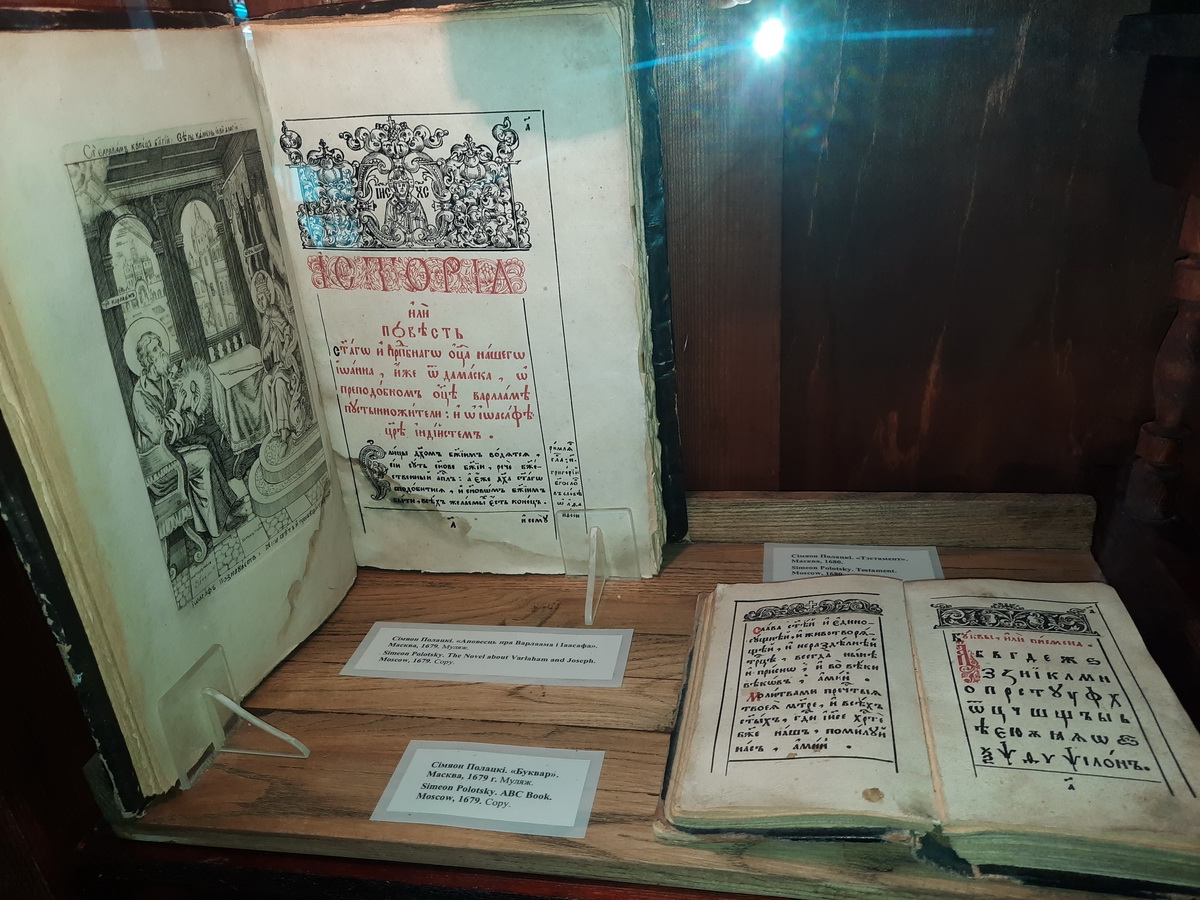 ІС ХС
ІСТОРІА
и҆лѝ
по́вѣсть
ст҃а́гѡ и҆ прпⷣбнагѡ ѻ҆ц҃а̀ на́шегѡ
і҆ѡа́нна , и҆́же ѿ дама́ска , ѡ҆
преподо́бномъ ѻ҆ц҃ѣ̀ варлаа́мѣ
пꙋстынножи́тели : и҆ ѡ҆ і҆ѡаса́фѣ
цр҃ѣ̀ і҆нді́йстемъ .
Е҆ли́цы дх҃омъ бж҃їимъ во́дятся ,
сїи сꙋть сы́нове бж҃їи , рече бж҃е-
ственный а҆пⷭ҇лъ : а҆ е҆́же дх҃а ст҃а́гѡ
сподобитися , и҆ сыновомъ бж҃їимъ
быти , всѣхъ желаемы́хъ е҆́сть коне́цъ .
Сімяон Полацкі. «Тэстамент».
Масква, 1680.
Simeon Polotsky. Testament.
Moscow, 1680.
Сімяон Полацкі. «Аповесць пра Варлаама і Іаасафа».
Масква, 1679. Муляж.
Simeon Polotsky. The Novel about Varlaham and Joseph.
Moscow, 1679. Copy.
Сімяон Полацкі. «Буквар».
Масква, 1679 г. Муляж.
Simeon Polotsky. ABC Book.
Moscow, 1679. Copy.
Слава ст҃ѣ́й и҆ є҆дино-
сꙋ́щнѣй, и҆ животворѧ́-
щей, и҆ неразде́лнѣй
трⷪ҇цѣ, всегда̀ нн҃ѣ
и҆ при́снѡ, и҆ во вѣ́ки
вѣкѡ́въ , а҆ми́нь .
Моли́твами пречⷭ҇тыѧ
твоеѧ̀ мт҃ре, и҆ всѣ́хъ
ст҃ы́хъ, гдⷭ҇и і҆и҃се хрⷭ҇тѐ
бж҃е на́шъ, поми́лꙋй
на́съ , а҆ми́нь .
Бꙋ́квы, и҆лѝ писмена̀ .
А б в г д є ж ѕ
з і к л м н
о п р с т ꙋ у ф х
ѿ ц ч ш щ ъ ы ь
ѣ є ю ѫ ꙗ ѧ ѡ
ѯ ѱ ѳ ѵ ѵ҆ псїло́нъ .